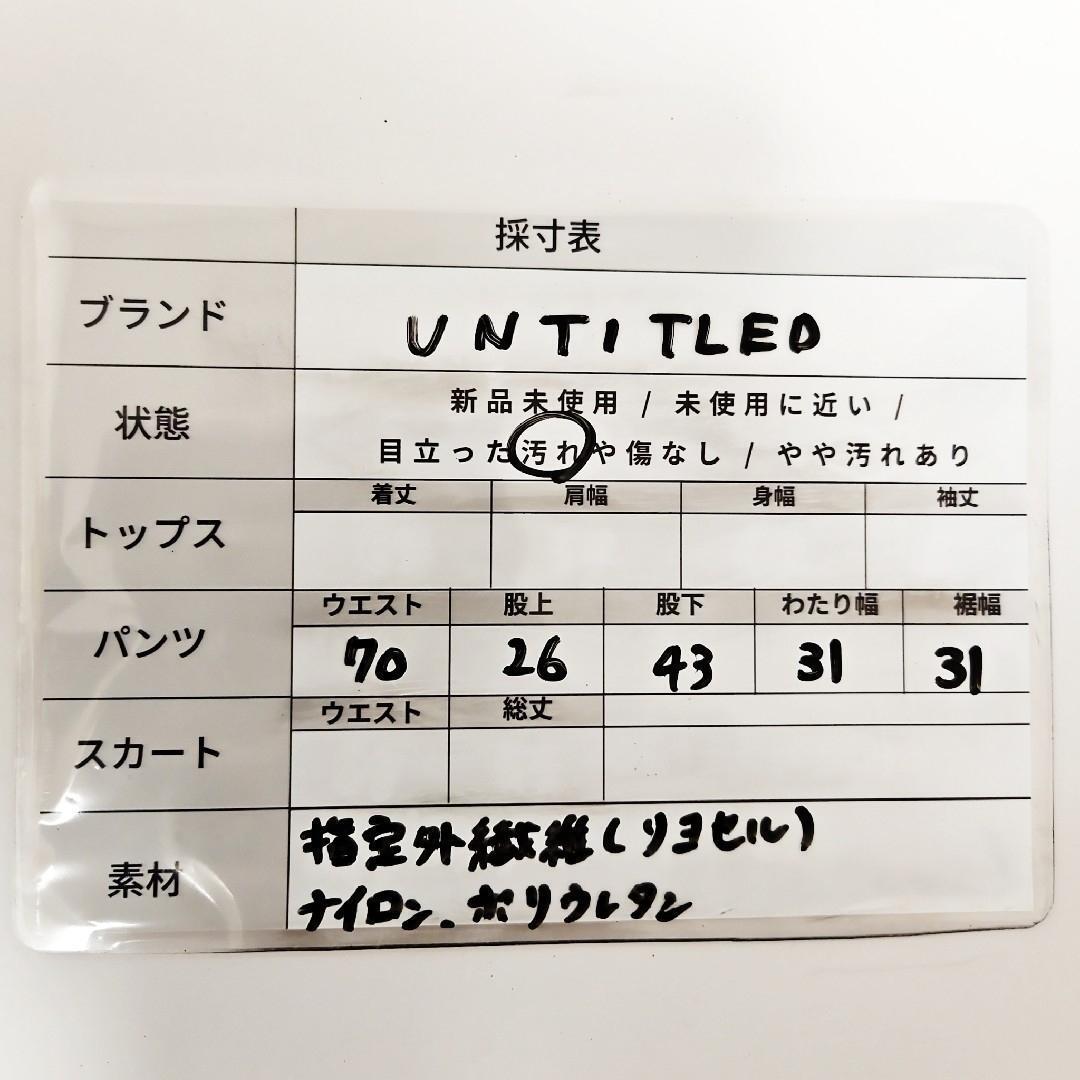 採寸表
ブランド UNTITLED
状態 新品未使用 / 未使用に近い /
目立った汚れや傷なし / やや汚れあり
トップス 着丈 肩幅 身幅 袖丈
パンツ ウエスト 股上 股下 わたり幅 裾幅
70 26 43 31 31
スカート ウエスト 総丈
素材 指定外繊維(リヨセル)
ナイロン、ポリウレタン